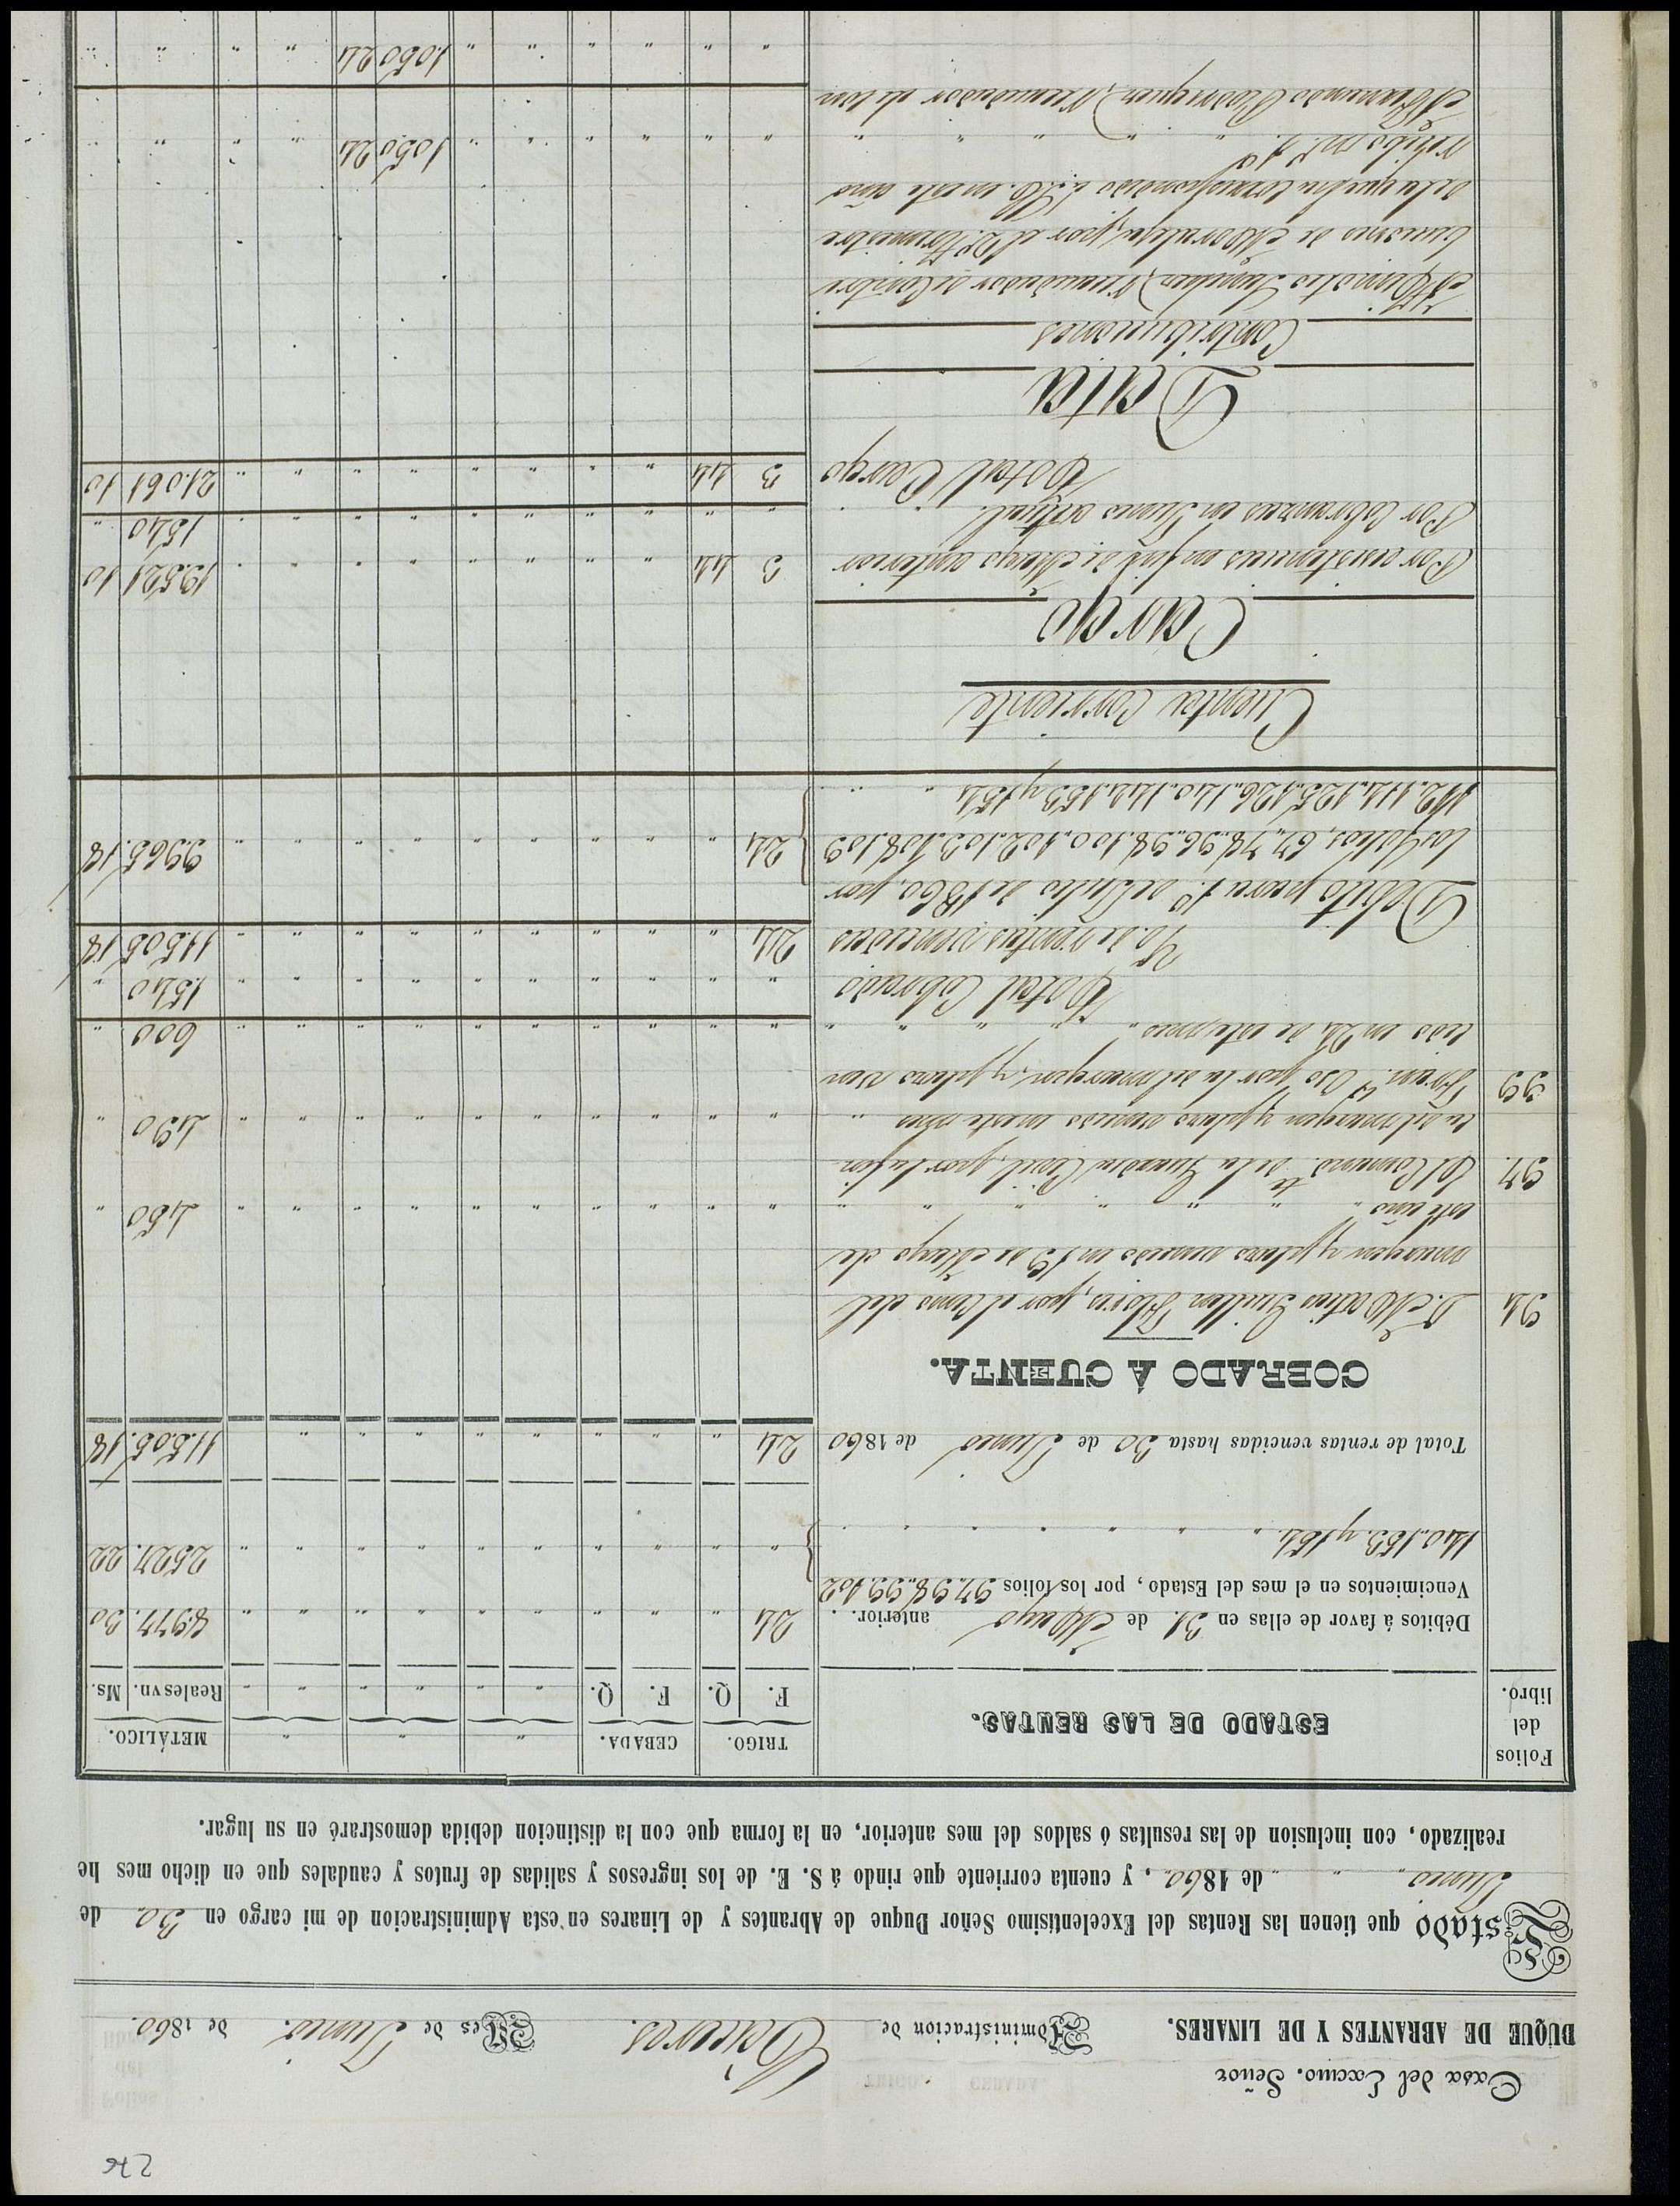 276
Casa del Excmo. Señor
DUQUE DE ABRANTES Y DE LINARES.
Administracion de Cáceres.
Mes de Junio. de 1860.
Estado que tienen las Rentas del Excelentísimo Señor Duque de Abrantes y de Linares en esta Administracion de mi cargo en 30 de
Junio " " " de 1860, y cuenta corriente que rindo á S. E. de los ingresos y salidas de frutos y caudales que en dicho mes he
realizado, con inclusion de las resultas ó saldos del mes anterior, en la forma que con la distincion debida demostraré en su lugar.
Folios del libro.
ESTADO DE LAS RENTAS.
TRIGO. CEBADA. " " " METÁLICO.
F. Q. F. Q. " " " " " " Reales vn. Ms.
Débitos á favor de ellas en 31. de Mayo anterior. 24 " " " " " " " " " 8977. 30
Vencimientos en el mes del Estado, por los folios 97,,98,,99,,102
140..153 y 154. " " " " " " " " " " 2527. 22
Total de rentas vencidas hasta 30 de Junio de 1860 24 " " " " " " " " " 11.505. 18
COBRADO Á CUENTA.
94 D. Matias Guillen Flores, por el Censo del
margen y plazo vencido en 19 de Mayo de
este año " " " " " " " " " " 450 "
97. El Comand.te de la Guardia Civil, por la fin
ca del margen y plazo vencido en este mes " " " " " " " " " " 490 "
99 Fran.co Oso por la del margen, y plazo ven
cido en 24 de este mes " " " " " " " " " " 600 "
Total Cobrado " " " " " " " " " " 1540 "
Yd. de rentas vencidas 24 " " " " " " " " " 11.505 18
Débito para 1.º de Julio de 1860, por
los folios, 67,,78,,96,,98.100,,102.103.108.109 24 " " " " " " " " " 9965. 18
112..114..125.126.140.142.153 y 154 " "
Cuenta Corriente
Cargo
Por existencias en fin de Mayo anterior 3 44 " " " " " " " " 19.521 10
Por Cobranzas en Junio actual. " " " " " " " " " " 1540 "
Total Cargo 3 44 " " " " " " " " 21.061 10
Data
Contribuciones
A Dionisio Sanchez, Recaudador de Contri
buciones de Moraleja, por el 2.º trimestre
de la que ha correspondido á S.E. en este año
recibo n.º 1.º " " " " " " " " " " " 1050 24 " " " "
A Raimundo Rodriguez, Recaudador de Con
" " " " " " 1.050 24 " " " "